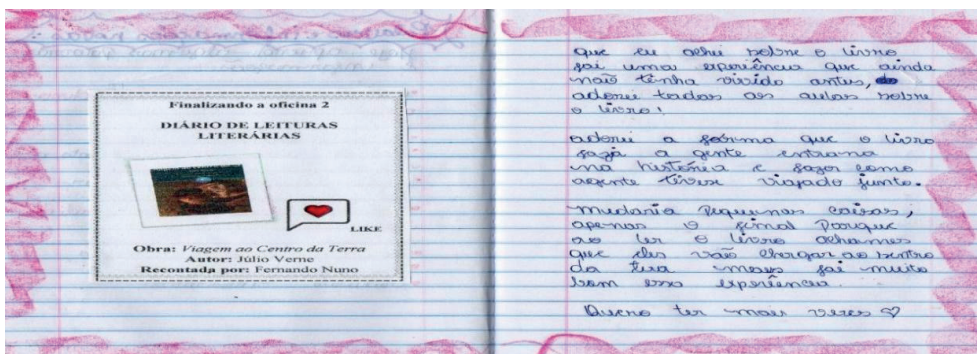 Finalizando a oficina 2
DIÁRIO DE LEITURAS
LITERÁRIAS
LIKE
Obra: Viagem ao Centro da Terra
Autor: Júlio Verne
Recontada por: Fernando Nuno
que eu achei sobre o livro
foi uma experiência que ainda
não tinha vivido antes,
adorei todas as aulas sobre
o livro!
adorei a forma que o livro
faz a gente entrar
na história e fazer como
agente tivese viajado junto.
Mudaria Pequenas coisas,
apenas o final Porque
ao ler o livro achamos
que eles vão chergar ao sentro
da tera mais foi muito
bom essa experiencia.
Quero ter mais vezes ♡